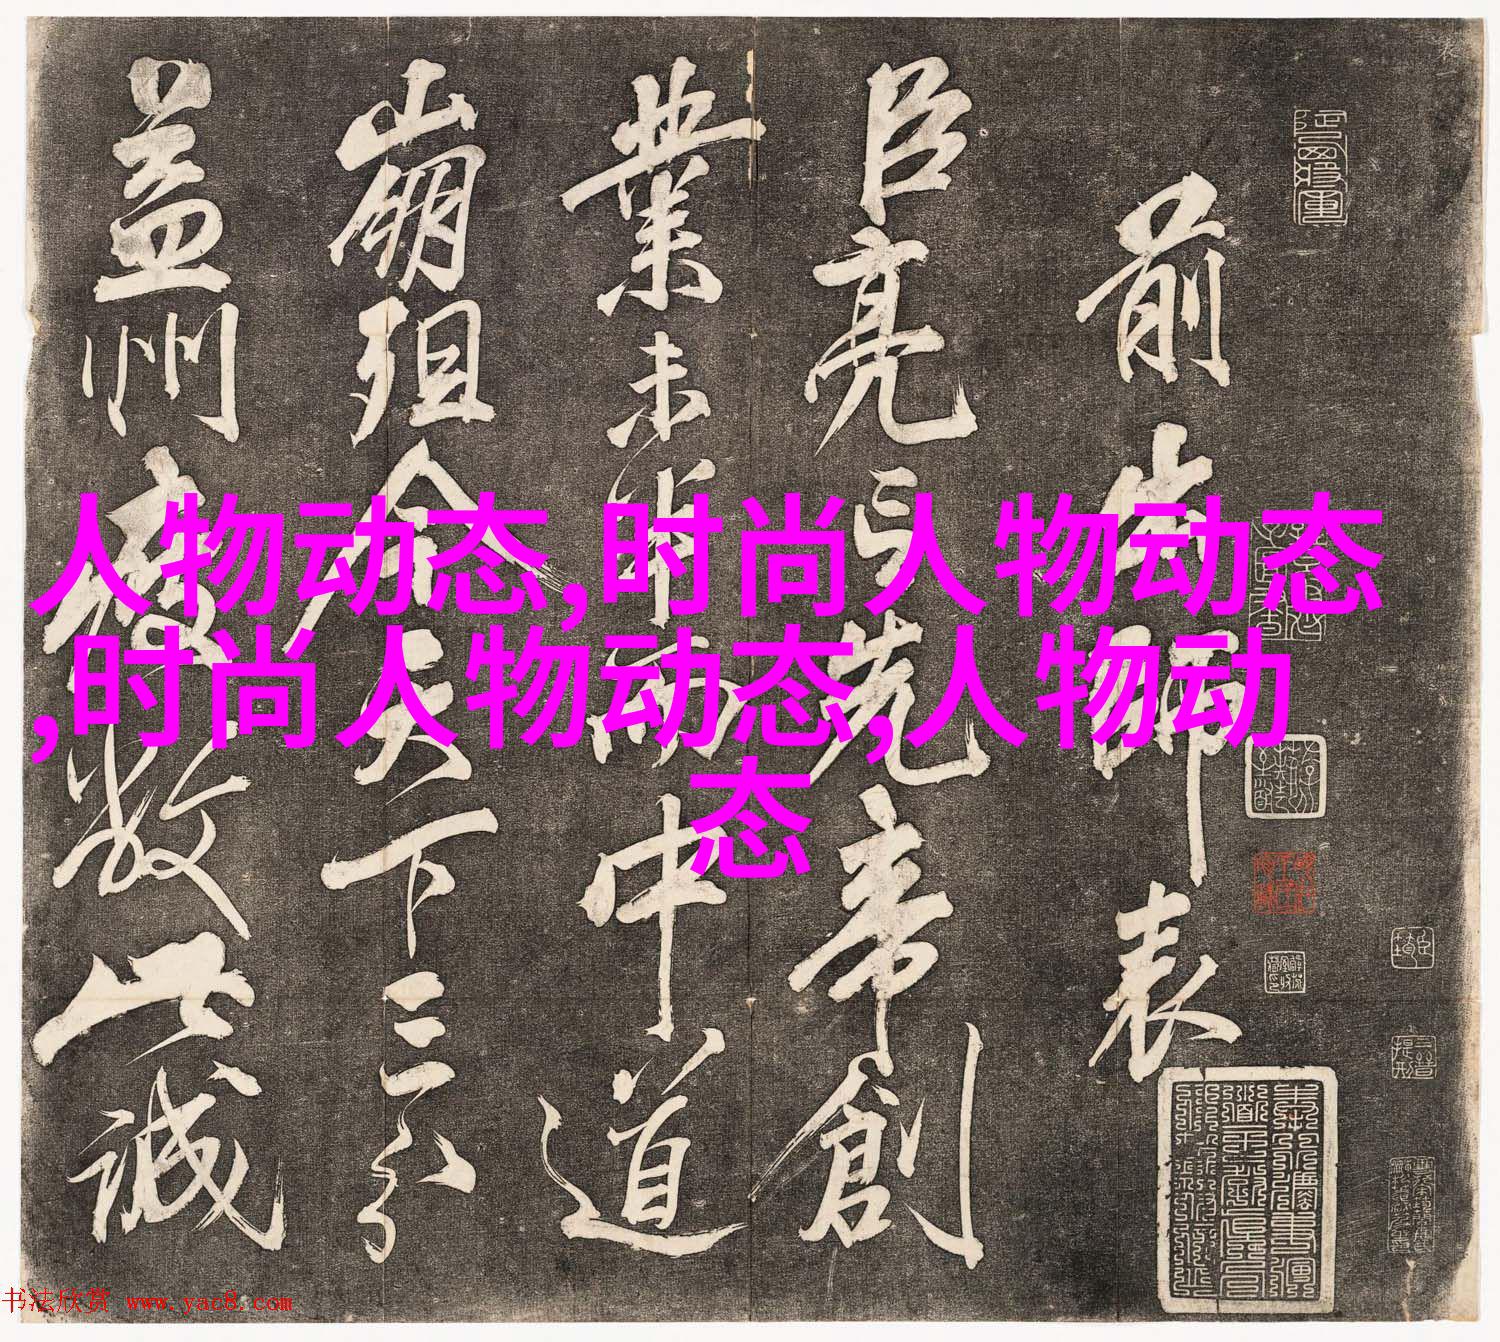 前出師表
臣亮言先帝創
業未半而中道
崩殂今天下三分
益州疲敝此誠
人物动态,时尚人物动态
,时尚人物动态,人物动
态
书法欣赏 www.yac8.com